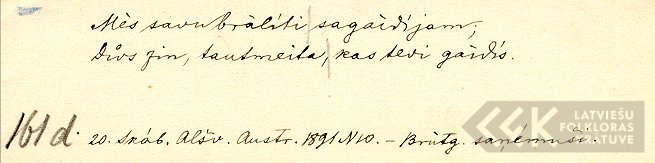 Mēs savu brālīti sagaidījam;
Divs zin, tautmeita, kas tevi gaidīs.
161d. 20. Skāb. Alšv. Austr. 1891 N10. – Brūtg. saņēmuši.
LATVIEŠU
FOLKLORAS
KRĀTUVE